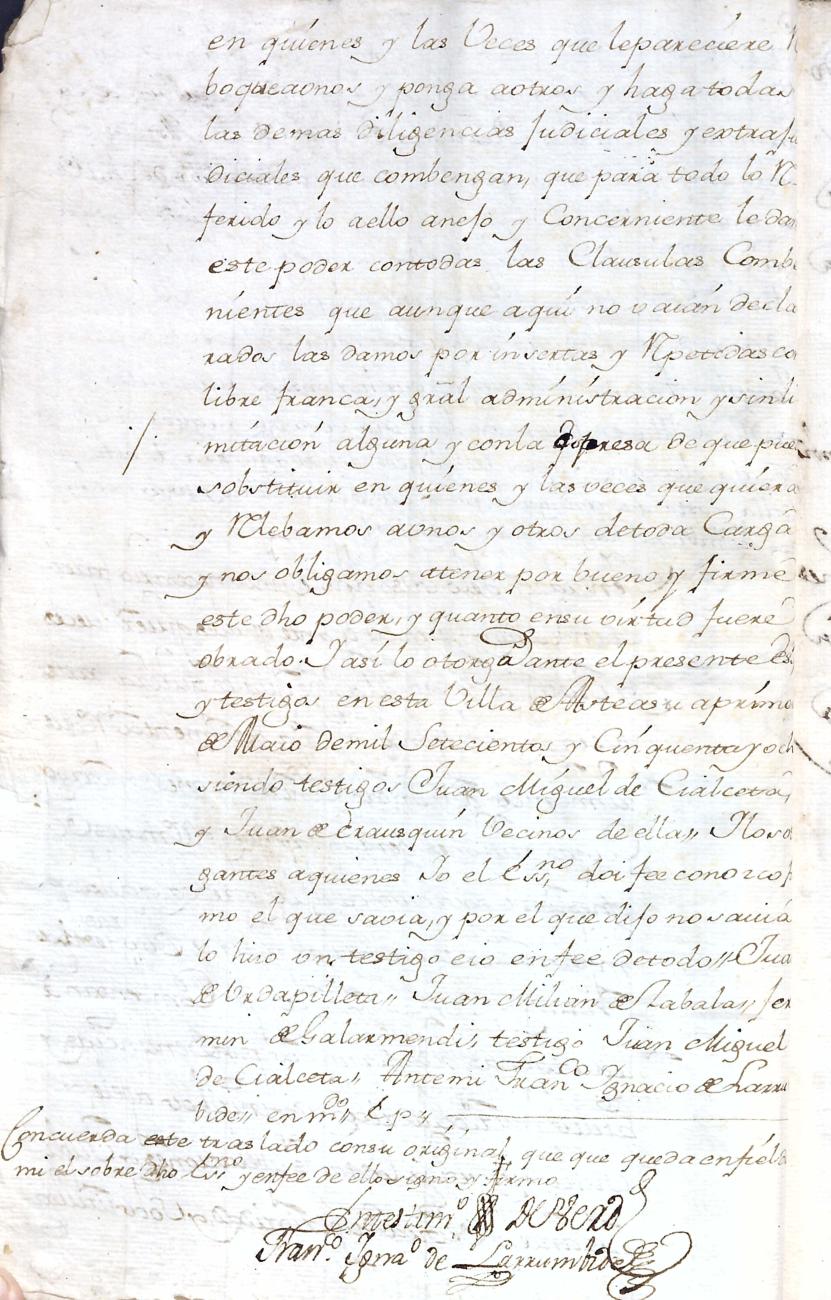 en quienes y las Veces que le pareciere R
boque aonos y ponga aotros y haga todas
las demas diligencias Judiciales y extraju
diciales que combengan, que para todo lo R
ferido y lo aello anejo y Concerniente le da
este poder contodas las Clausulas Combe
nientes que aunque aqui no vaian decla
rados las damos por insertas y Rpetidas co
libre franca, y gral administracion y sinli
mitacion alguna y conla expresa de que pue
sobstituir en quienes y las veces que quiera
y Rlebamos aunos y otros detoda Carga
y nos obligamos atener por bueno y firme
este dho poder, y quanto ensu virtud fuere
obrado. Jasi lo otorga Dante el presente Es
y testigos en esta Villa de Asteasu aprimo
de Maio demil Setecientos y Cinquenta y och
siendo testigos Juan Miguel de Cialceta,
y Juan de Erausquin Vecinos de ella,, Ilos o
gantes aquienes Jo el Essno doi fee conozco f
mo el que savia, y por el que dijo no savia
lo hizo un testigo eio enfee detodo,, Jua
de Urdapilleta,, Juan Milian de Zabala,, fer
min de Galarmendi, testigo Juan Miguel
de Cialceta,, Antemi Franco Ignacio de Larru
bide,, enmdo
Concuerda este traslado consu original que que queda enfiel
mi el sobre dho Essno y enfee de ello signo y firmo
Entestimo de Verd
Franco Ignao de Larrumbide